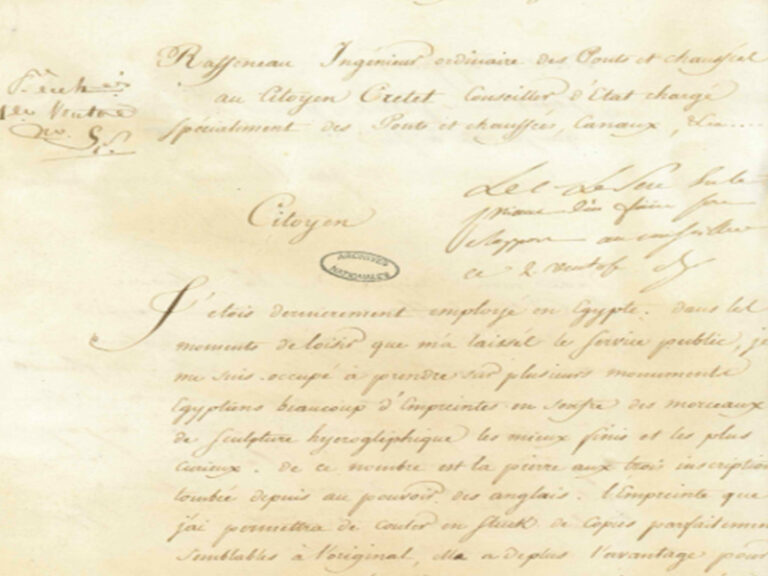 Raffeneau Ingénieur ordinaire des Ponts et chaussées
au Citoyen Cretet Conseiller d'Etat chargé
spécialement des Ponts et chaussées, Canaux, &ca....
Citoyen
ARCHIVES
NATIONALES
J'étois dernierement employé en Egypte. dans les
moments de loisir que m'a laissés le service public, je
me suis occupé à prendre sur plusieurs monuments
Egyptiens beaucoup d'Empreintes en soufre des morceaux
de sculpture hyerogliphique les mieux finis et les plus
curieux. de ce nombre est la pierre aux trois inscription
tombée depuis au pouvoir des anglais. l'Empreinte que
j'ai permettra de couler en stuck de copies parfaitemen
semblables à l'original, Elle a deplus l'avantage pour